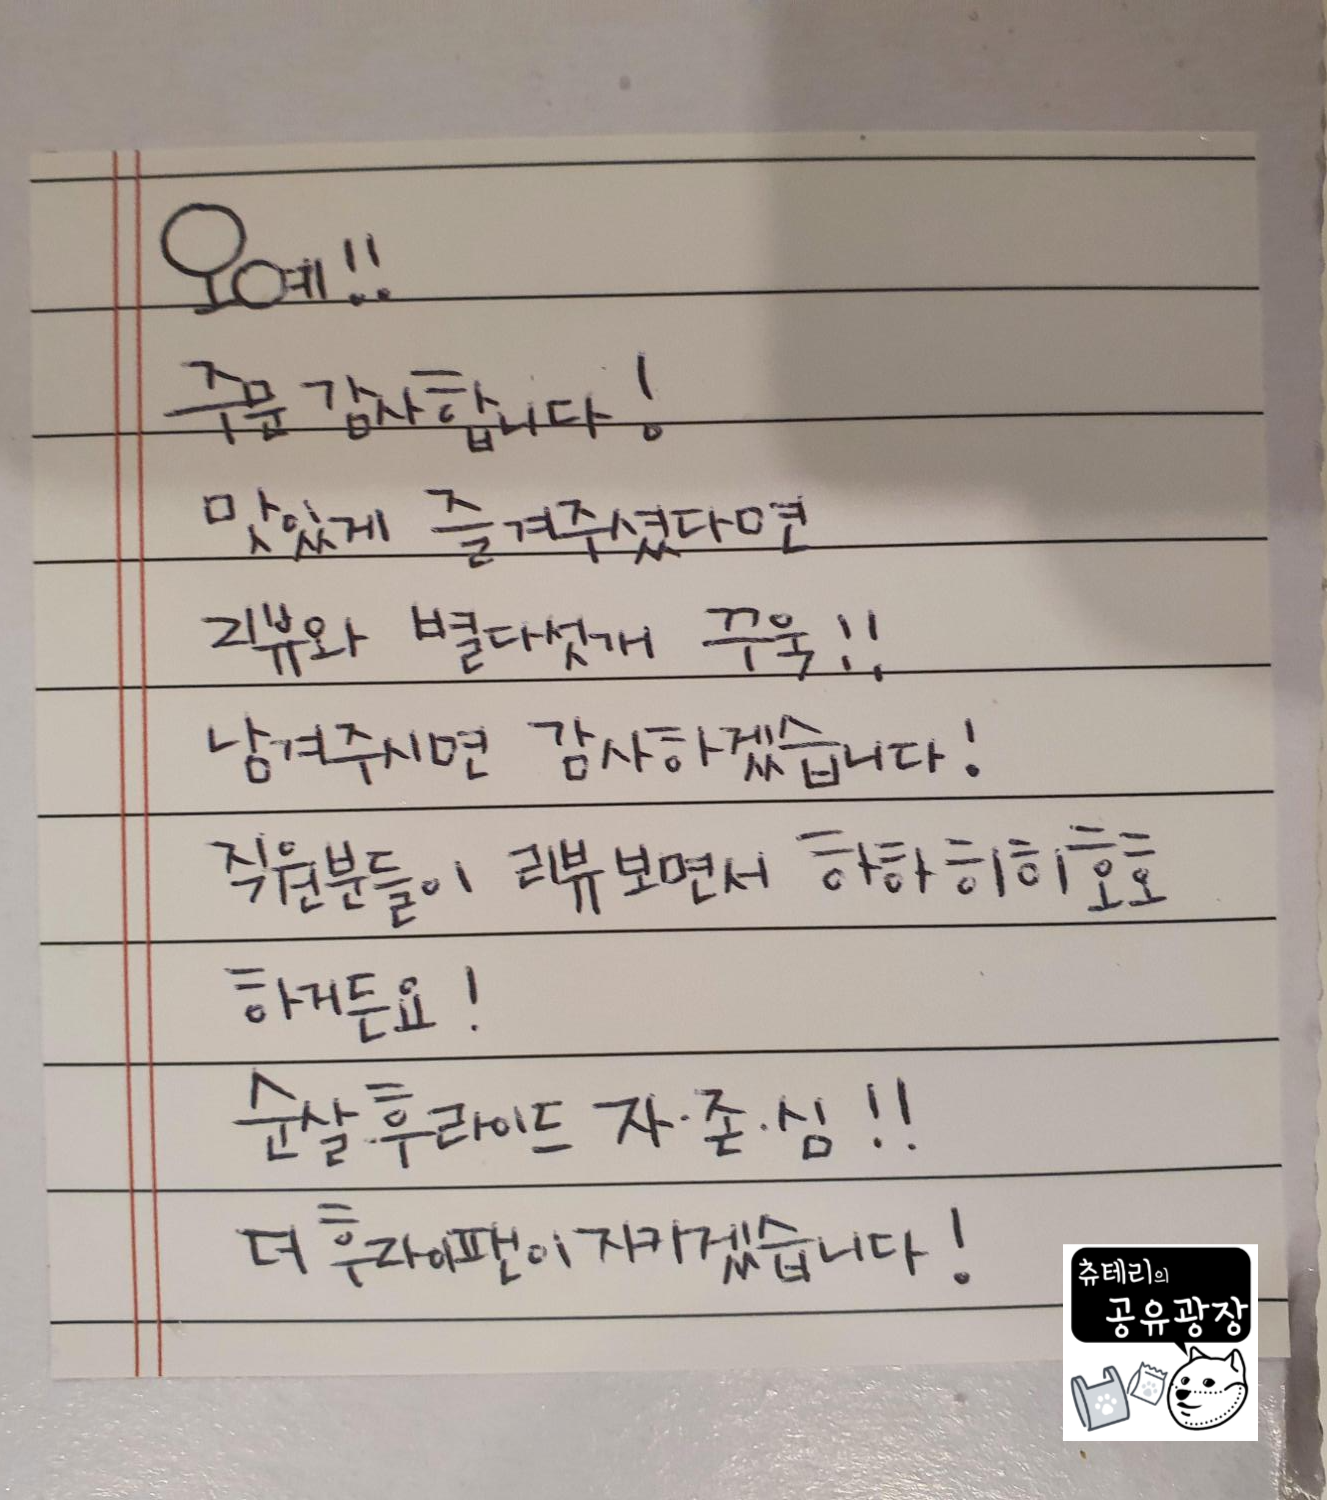 오예!!
주문 감사합니다!
맛있게 즐겨주셨다면
리뷰와 별다섯개 꾸욱!!
남겨주시면 감사하겠습니다!
직원분들이 리뷰보면서 하하히히호호
하거든요!
순살후라이드 자·존·심!!
더후라이팬이지카겠습니다!
츄테리의
공유광장